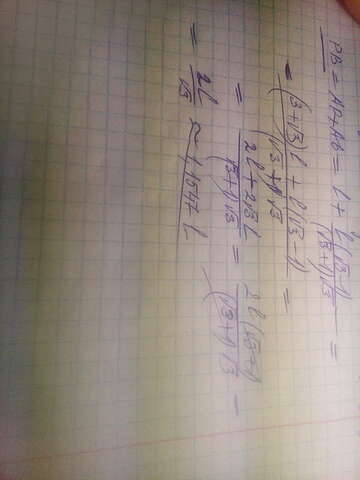 PB = AP + AB = l + \frac{l(√3-1)}{(√3+1)√3} =
= \frac{(3+√3)l + l(√3-1)}{(√3+1)√3} =
= \frac{2l + 2√3l}{(√3+1)√3} = \frac{2l(√3+1)}{(√3+1)√3} =
= \frac{2l}{√3} ≈ 1,1547 l